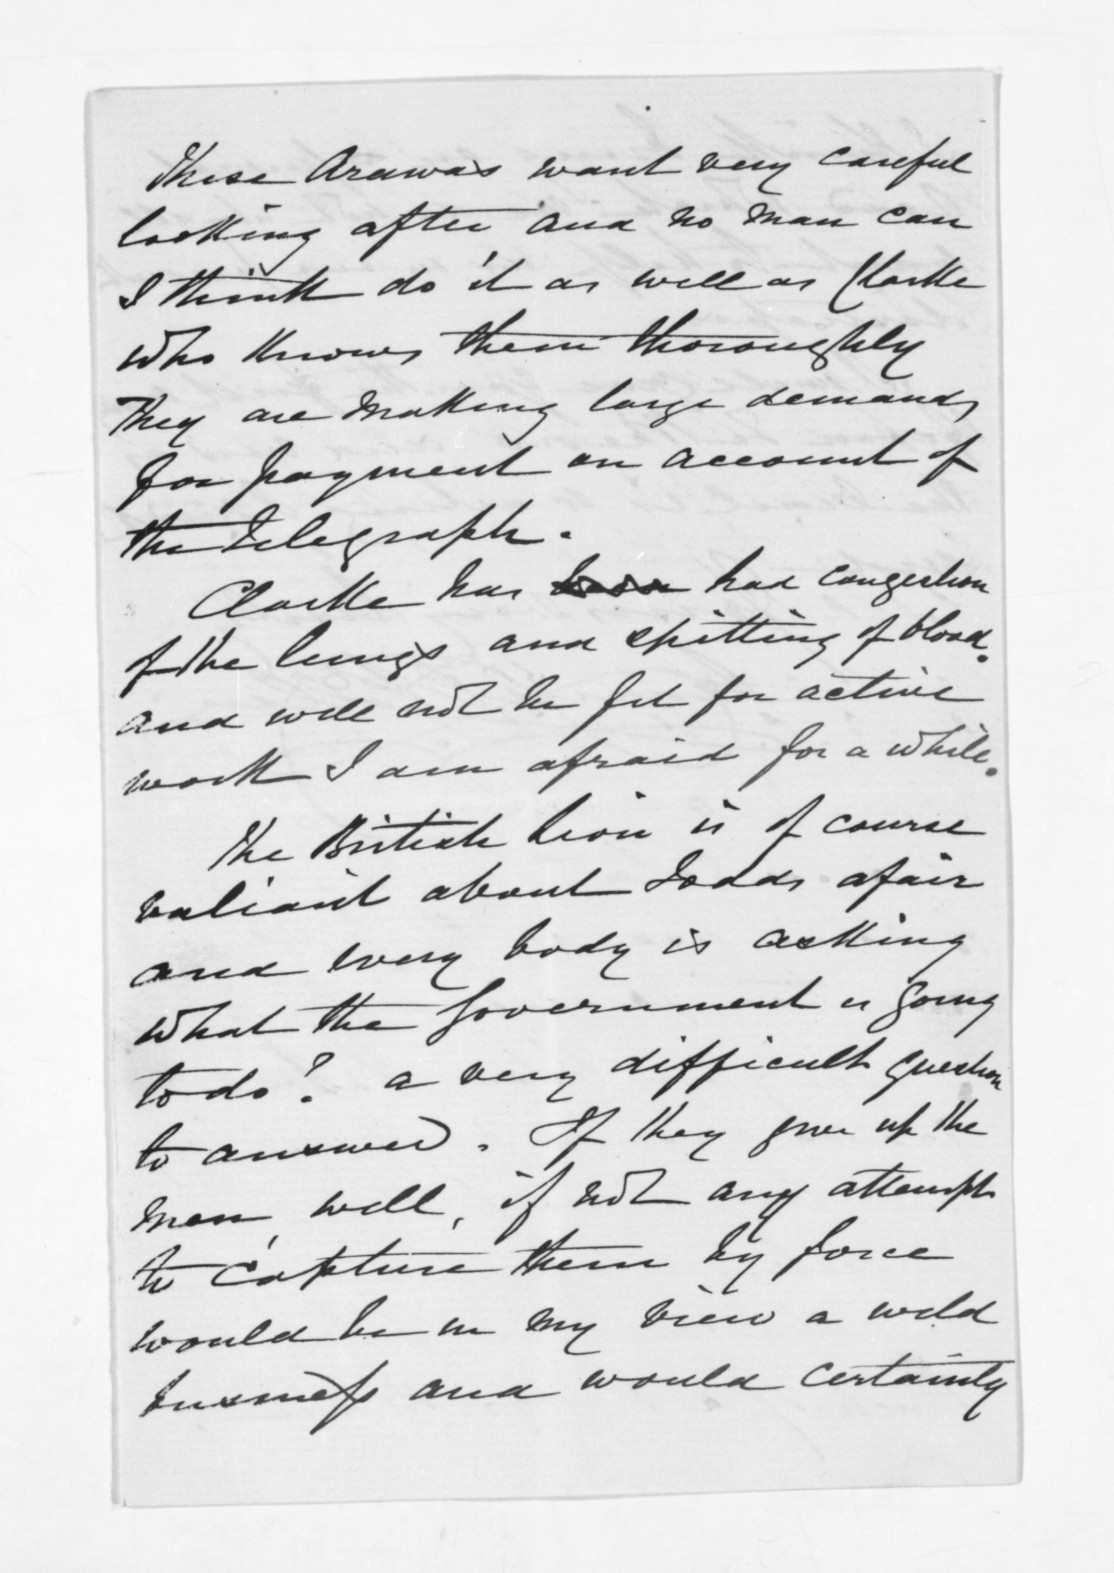 These Arawas want very careful
looking after and no man can
I think do it as well as Clarke
who knows them thoroughly
They are making large demands
for payment on account of
the Telegraph.
Clarke has been had congestion
of the lungs and spitting of blood.
and will not be fit for active
work I am afraid for a while.
The British Lion is of course
valiant about Todds afair
and every body is asking
what the Government is going
to do? a very difficult question
to answer. If they give up the
men, well, if not any attempt
to capture them by force
would be in my view a wild
business and would certainly